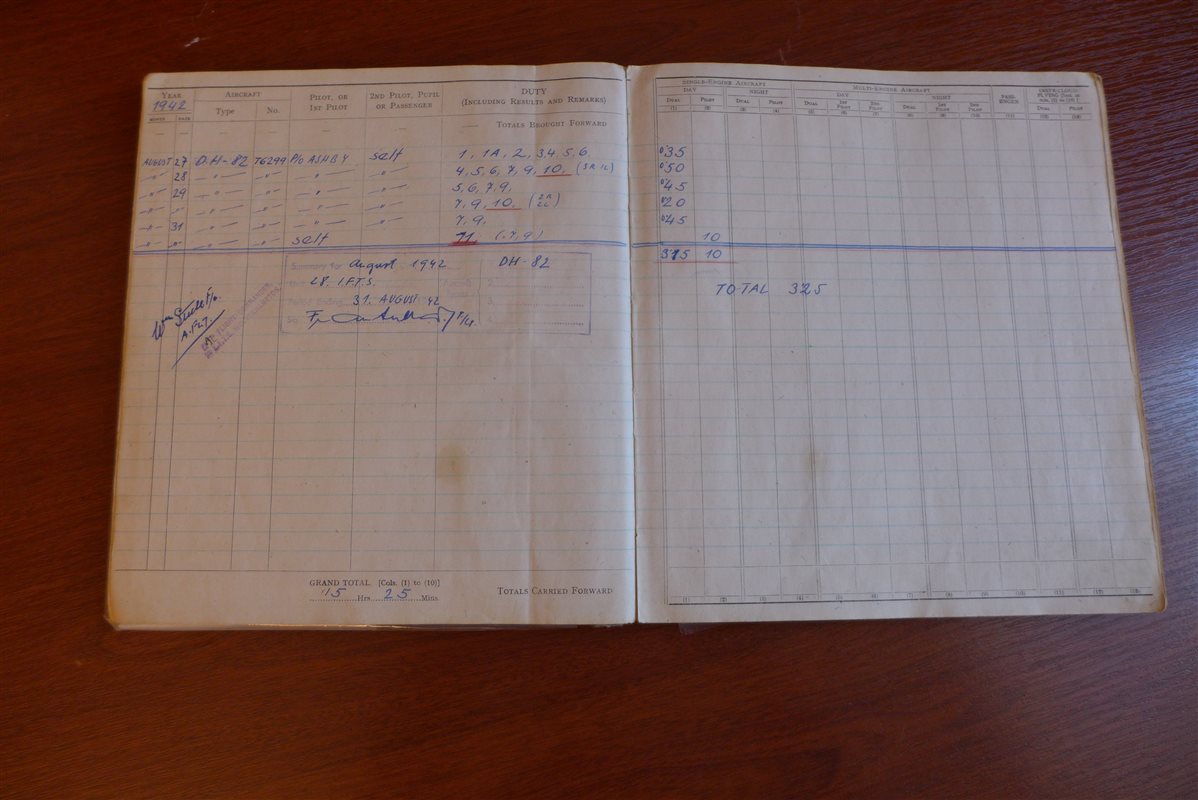 YEAR AIRCRAFT PILOT, OR 1ST PILOT 2ND PILOT, PUPIL OR PASSENGER DUTY (INCLUDING RESULTS AND REMARKS)
1942
MONTH DATE Type No.
— — — — — — TOTALS BROUGHT FORWARD
AUGUST 27 D.H-82 T6299 P/O ASHBY self 1, 1A, 2, 3, 4, 5, 6.
—"— 28 —"— —"— —"— —"— 4, 5, 6, 7, 9, 10. (3R 1L)
—"— 29 —"— —"— —"— —"— 5, 6, 7, 9,
—"— " —"— —"— —"— —"— 7, 9, 10. (2R 2L)
—"— 31 —"— —"— —"— —"— 7, 9,
—"— " —"— —"— self 11 (7, 9)
Summary for August 1942 DH-82
28. E.F.T.S.
31. AUGUST 42
GRAND TOTAL [Cols. (1) to (10)]
15 Hrs. 25 Mins.
TOTALS CARRIED FORWARD
SINGLE-ENGINE AIRCRAFT MULTI-ENGINE AIRCRAFT PASS-ENGER
DAY NIGHT DAY NIGHT
DUAL PILOT DUAL PILOT DUAL 1ST PILOT 2ND PILOT DUAL 1ST PILOT 2ND PILOT DUAL PILOT
(1) (2) (3) (4) (5) (6) (7) (8) (9) (10) (11) (12) (13)
0'35
0'50
0'45
0'20
0'45
10
315 10
TOTAL 325
(1) (2) (3) (4) (5) (6) (7) (8) (9) (10) (11) (12) (13)